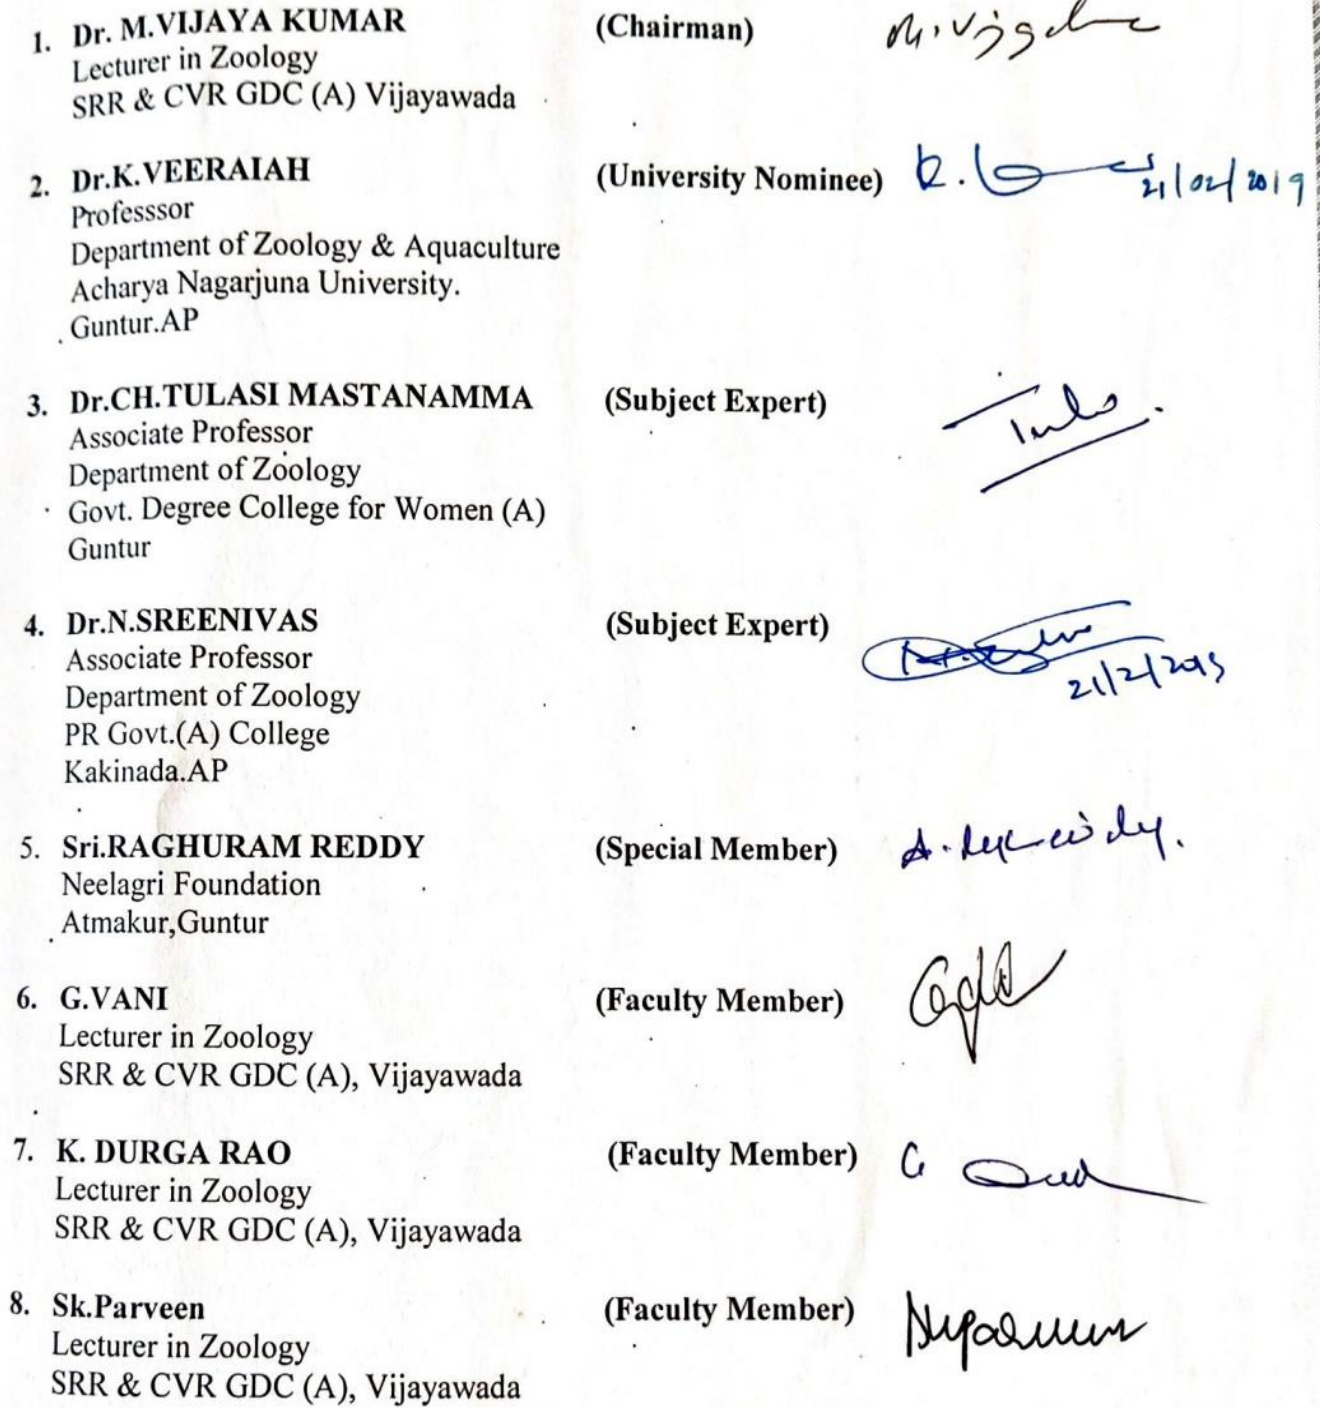 1. Dr. M.VIJAYA KUMAR (Chairman)
Lecturer in Zoology
SRR & CVR GDC (A) Vijayawada
2. Dr.K.VEERAIAH (University Nominee) 21/02/2019
Professsor
Department of Zoology & Aquaculture
Acharya Nagarjuna University.
Guntur.AP
3. Dr.CH.TULASI MASTANAMMA (Subject Expert)
Associate Professor
Department of Zoology
Govt. Degree College for Women (A)
Guntur
4. Dr.N.SREENIVAS (Subject Expert)
Associate Professor 21/2/2019
Department of Zoology
PR Govt.(A) College
Kakinada.AP
5. Sri.RAGHURAM REDDY (Special Member)
Neelagri Foundation
Atmakur,Guntur
6. G.VANI (Faculty Member)
Lecturer in Zoology
SRR & CVR GDC (A), Vijayawada
7. K. DURGA RAO (Faculty Member)
Lecturer in Zoology
SRR & CVR GDC (A), Vijayawada
8. Sk.Parveen (Faculty Member)
Lecturer in Zoology
SRR & CVR GDC (A), Vijayawada